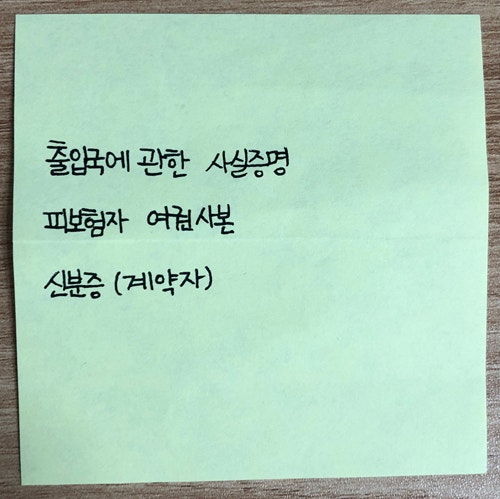 출입국에 관한 사실증명
피보험자 여권사본
신분증 (계약자)